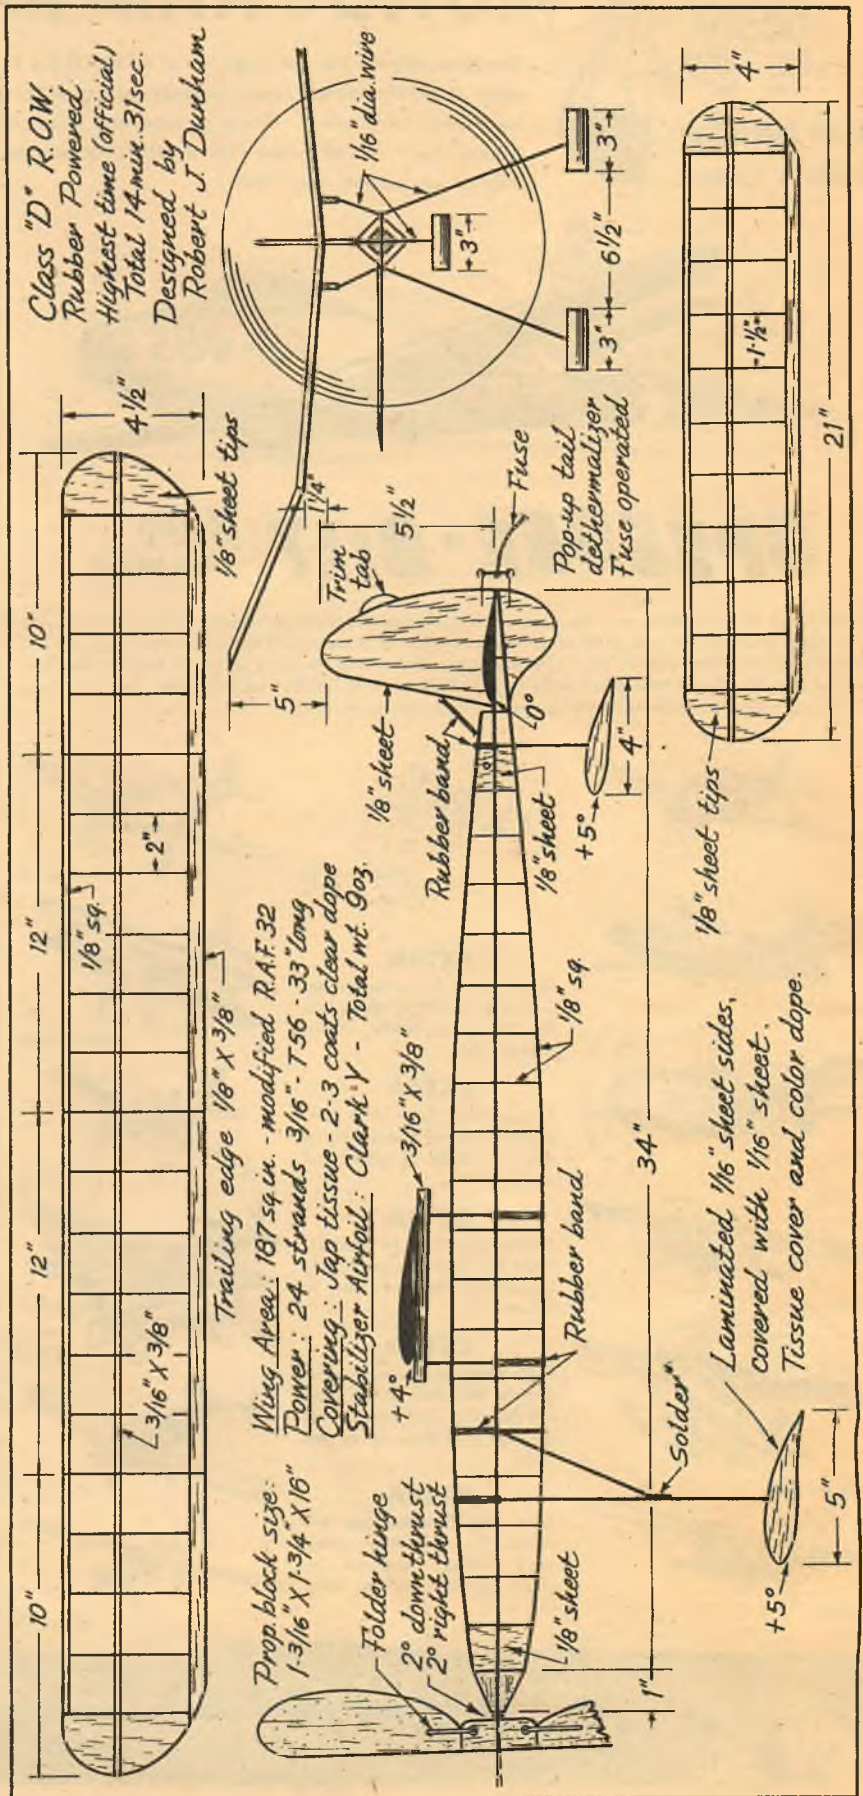 Class "D" R.O.W.
Rubber Powered
Highest time (official)
Total 14 min. 31 sec.
Designed by
Robert J. Dunham
10"
12"
12"
10"
4 1/2"
1/8" sheet tips
1/8" sq.
2"
3/16" X 3/8"
Trailing edge 1/8" X 3/8"
1/16" dia. wire
3"
3"
6 1/2"
3"
1 1/4"
5"
5 1/2"
Prop. block size:
1-3/16" X 1-3/4" X 16"
Wing Area: 187 sq in. - modified R.A.F. 32
Power: 24 strands 3/16" - T56 - 33" long
Covering: Jap tissue - 2-3 coats clear dope
Stabilizer Airfoil: Clark "Y" - Total wt. 9oz.
Folder hinge
2° downthrust
2° right thrust
+4°
3/16" X 3/8"
Rubber band
1/8" sheet
Trim
tab
Fuse
Pop-up tail
dethermalizer
Fuse operated
0°
1/8" sheet
1/8" sheet
1/8" sq.
Rubber band
Solder
+5°
4"
1"
34"
+5°
5"
Laminated 1/16" sheet sides,
covered with 1/16" sheet.
Tissue cover and color dope.
1/8" sheet tips
1-1/2"
4"
21"